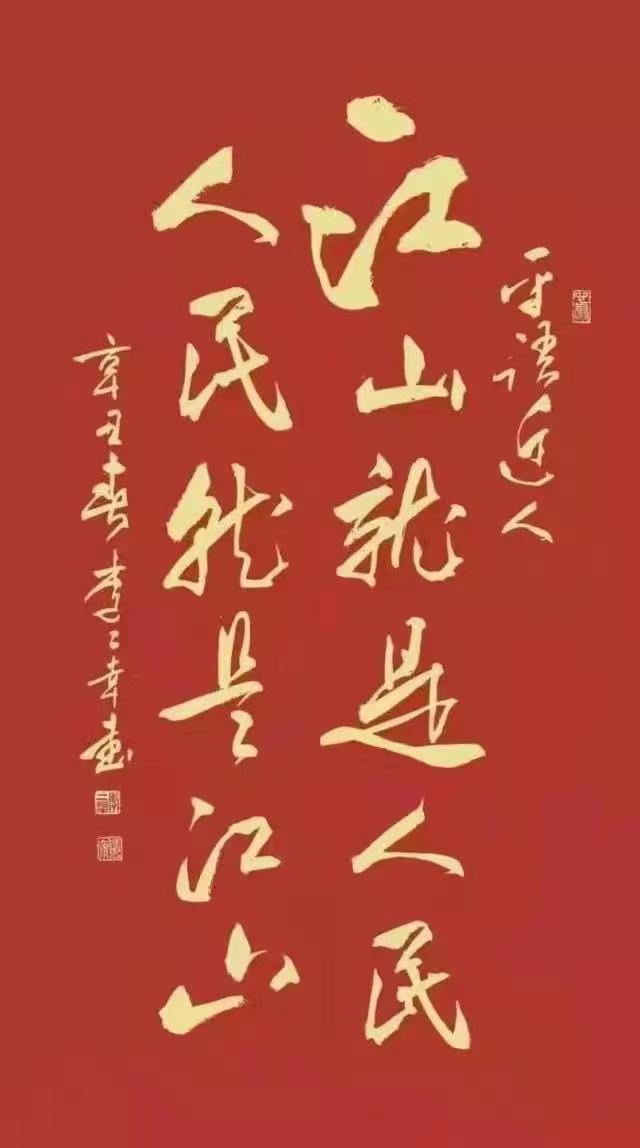 平语近人
江山就是人民
人民就是江山
辛丑春李二幸书